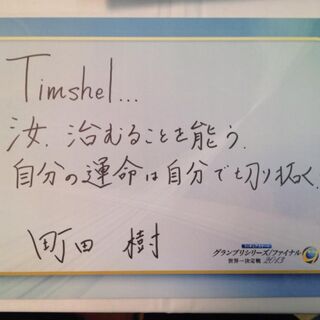 Timshel...
汝、治むることを能う.
自分の運命は自分で切り拓く.
町田 樹
グランプリシリーズ/ファイナル
世界一決定戦 2013